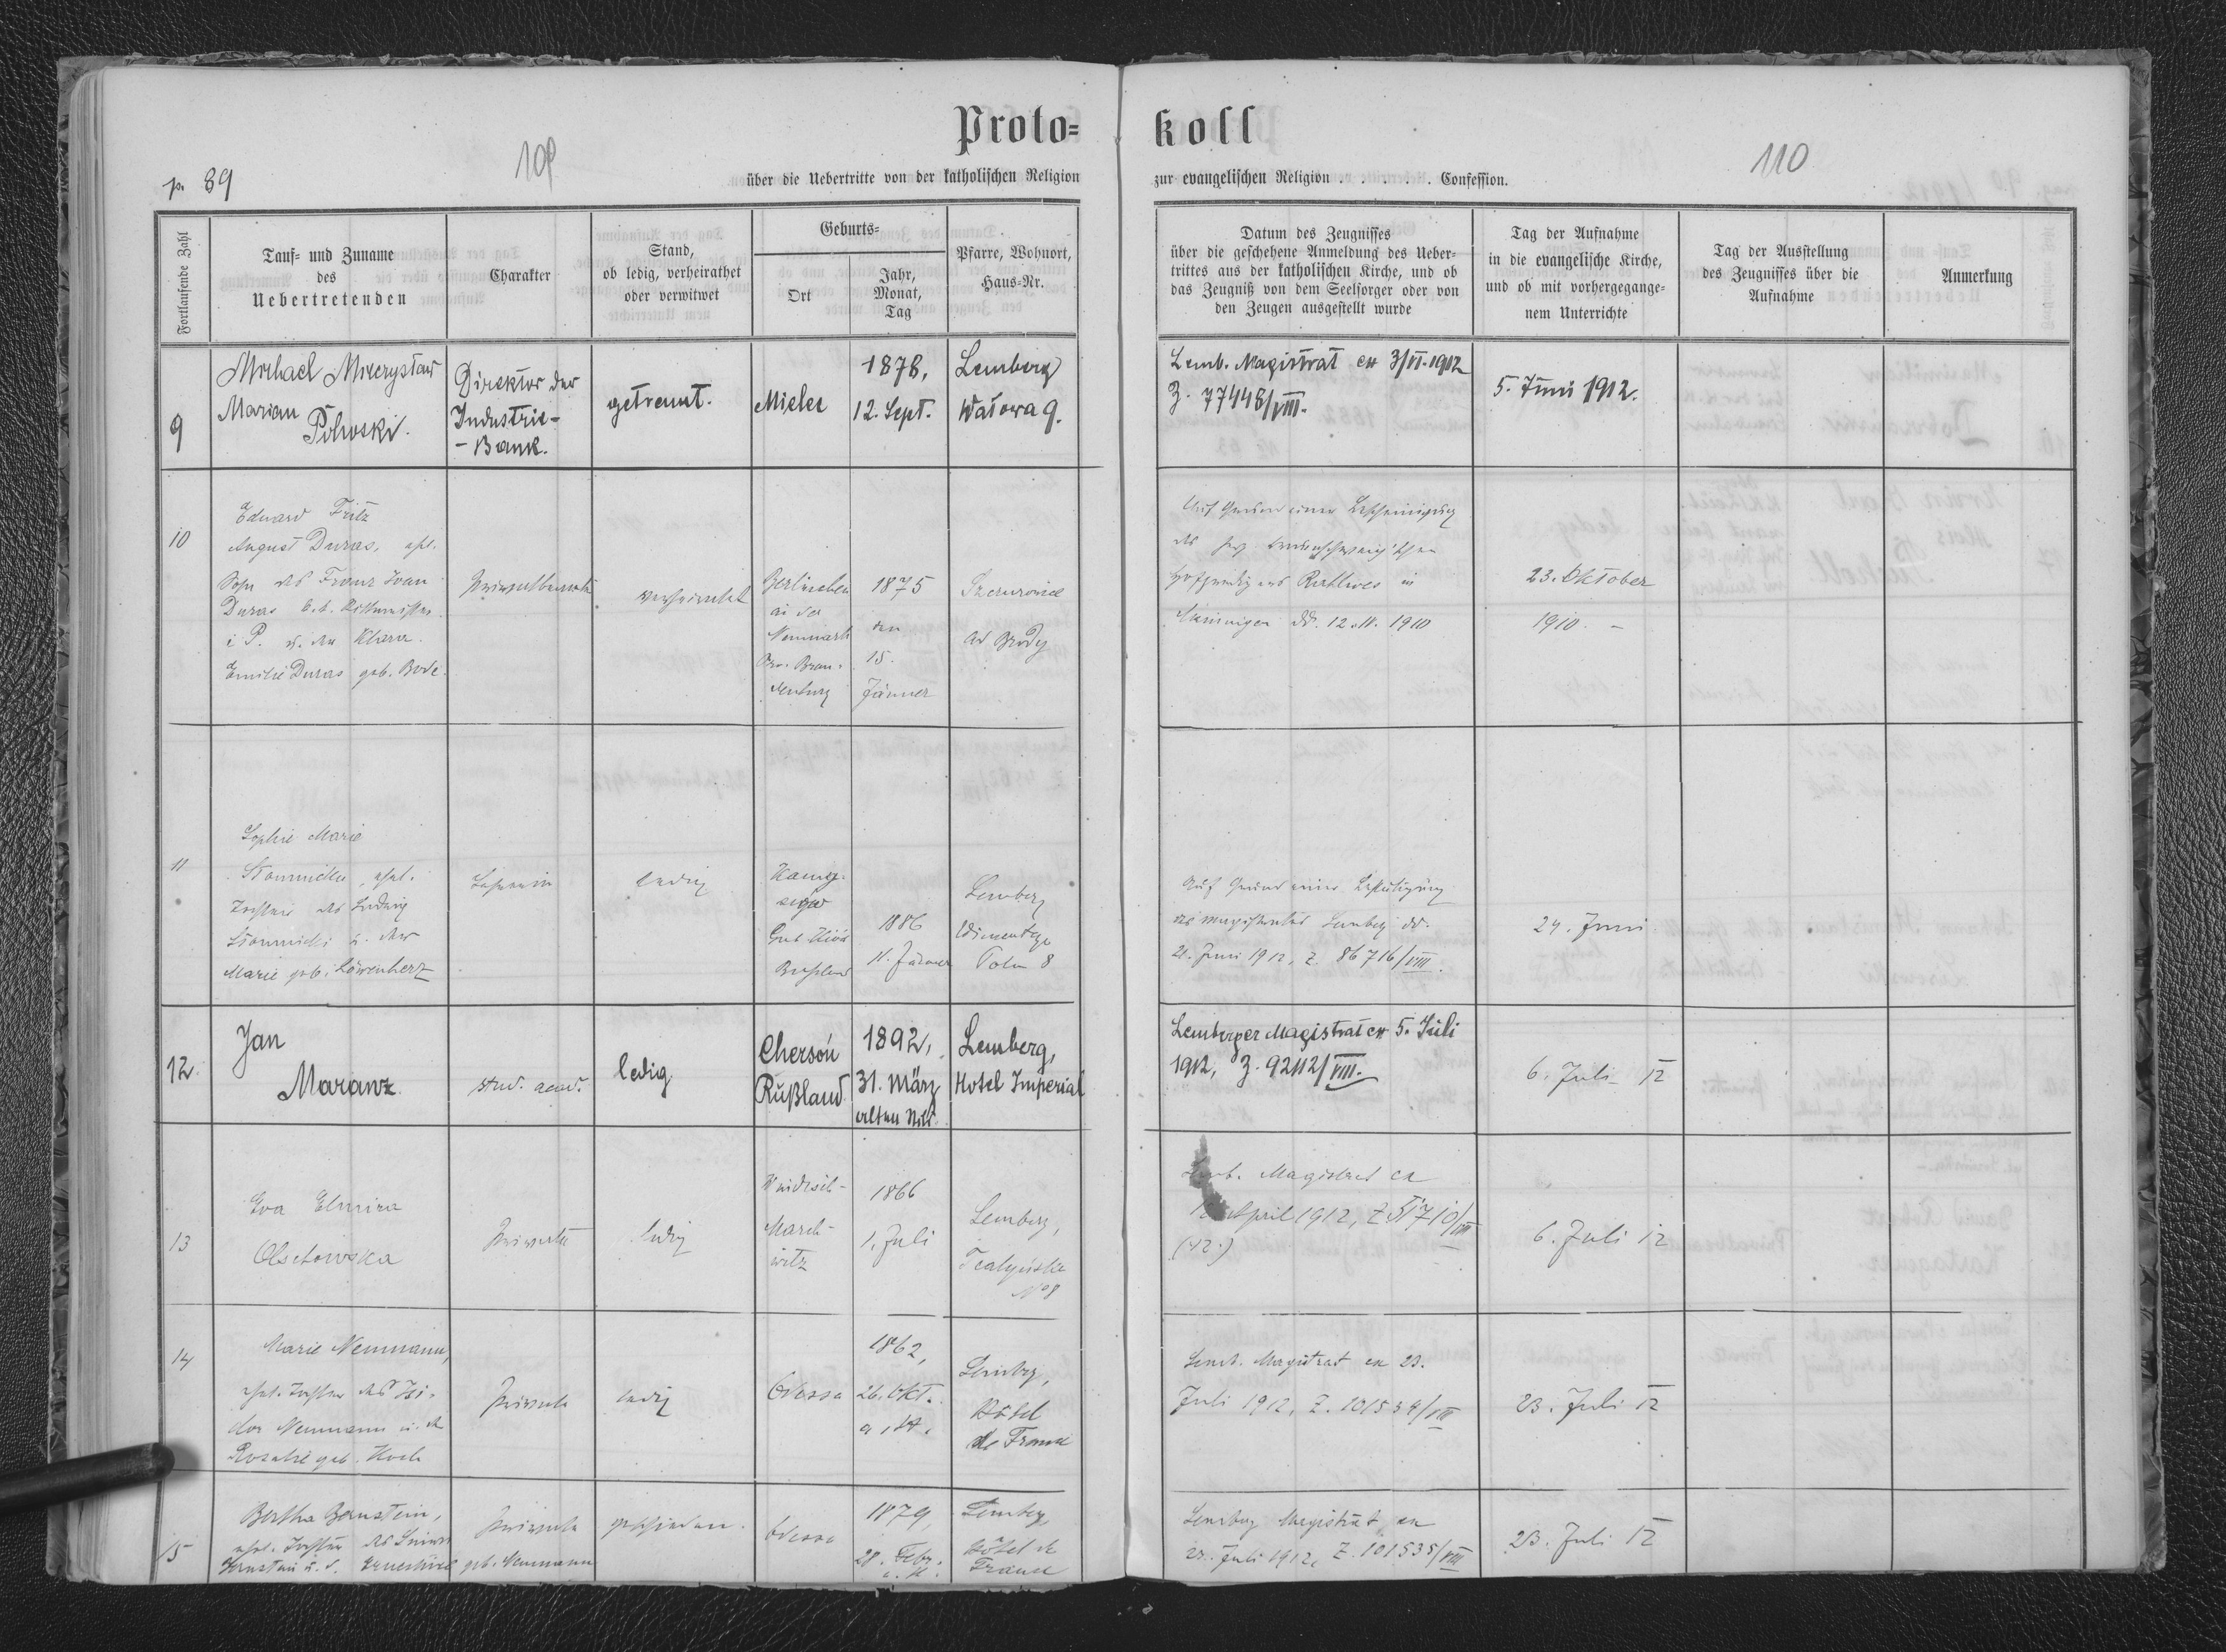 Proto=
koll
p. 89
109
110
über die Uebertritte von der katholischen Religion
zur evangelischen Religion . . . . . . Confession.
Fortlaufende Zahl
Tauf= und Zuname
des
Uebertretenden
Charakter
Stand,
ob ledig, verheirathet
oder verwitwet
Geburts=
Ort
Jahr,
Monat,
Tag
Pfarre, Wohnort,
Haus=Nr.
Datum des Zeugnisses
über die geschehene Anmeldung des Ueber=
trittes aus der katholischen Kirche, und ob
das Zeugniß von dem Seelsorger oder von
den Zeugen ausgestellt wurde
Tag der Aufnahme
in die evangelische Kirche,
und ob mit vorhergegange=
nem Unterrichte
Tag der Ausstellung
des Zeugnisses über die
Aufnahme
Anmerkung
9
Michael Mieczysław
Marian
Direktor der
Industrie-
-Bank.
getrennt.
Mielec
1878,
12. Sept.
Lemberg
Wałowa 9.
Lemb. Magistrat ex 3/VI. 1912
Z. 77448/VIII.
5. Juni 1912.
10
Eduard Fritz
August Duras, ehl.
Sohn des Franz
Duras
i P. u. der Klara
Emilie Duras geb. Bode.
Privatbeamte
verheiratet
Berlinchen
in der
Neumark
Prov. Bran=
denburg
1875
den
15.
Jänner
ad Brody
Auf Grund einer Bescheinigung
des
in
dd. 12. 1910
23. Oktober
1910. -
11
Sophie Marie
ehel.
Tochter des Ludwig
u. der
Marie geb. Löwenherz
Lehrerin
ledig
1886
11. Jänner
Lemberg
8
Auf Grund einer Bestätigung
des Magistrates Lemberg dd.
21. Juni 1912, Z. 86716/VIII.
24. Juni
12.
Jan
Maranz
stud. acad.
ledig
Cherson
Rußland
1892,
31. März
alten Stils
Lemberg,
Hotel Imperial
Lemberger Magistrat ex 5. Juli
1912, Z. 92112/VIII.
6. Juli 12
13
Eva Elmira
Olschowska
Private
ledig
1866
1. Juli
Lemberg,
No 8
Lemb. Magistrat ex
April 1912, Z.
6. Juli 12
14
Marie Neumann,
ehel. Tochter des Isi=
dor Neumann u. d.
Rosalie geb. Koch
Private
ledig
Odessa
1862,
26. Okt.
a. St.
Lemberg,
Hôtel
de France
Lemb. Magistrat ex 23.
Juli 1912, Z. 101534/VIII
23. Juli 12
15
Bertha Bernstein,
ehel. Tochter des
Bernstein u. d. Ernestine geb. Neumann
Private
geschieden.
Odessa
1879,
28. Febr.
a. St.
Lemberg
Hôtel de
France
Lemberg Magistrat ex
23. Juli 1912, Z. 101535/VIII
23. Juli 12